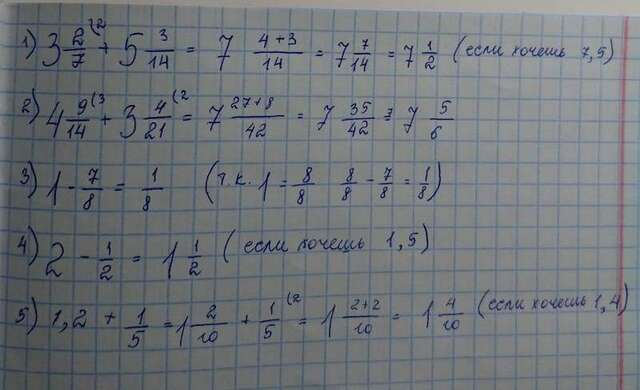 1) 3 2/7 (2 + 5 3/14 = 7 4+3/14 = 7 7/14 = 7 1/2 (если хочешь 7,5)
2) 4 9/14 (3 + 3 4/21 (2 = 7 27+8/42 = 7 35/42 = 7 5/6
3) 1 - 7/8 = 1/8 (т.к. 1 = 8/8 8/8 - 7/8 = 1/8)
4) 2 - 1/2 = 1 1/2 (если хочешь 1,5)
5) 1,2 + 1/5 = 1 2/10 + 1/5 (2 = 1 2+2/10 = 1 4/10 (если хочешь 1,4)